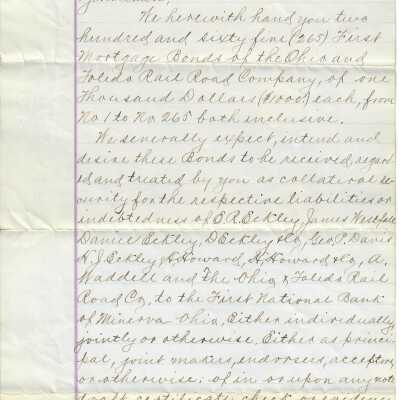 We herewith hand you two
hundred and sixty five (265) First
Mortgage Bonds of the Ohio and
Toledo Rail Road Company, of one
Thousand Dollars ($1000.) each, from
No 1 to No 265 both inclusive.
We severally expect, intend and
desire these Bonds to be received, regard
ed, and treated by you as collateral se-
curity for the respective liabilities or
indebtedness of E. R. Eckley, James Westfall
Daniel Eckley, D Eckley & Co, Geo. P. Davis
H. J. Eckley, H. Howard, H. Howard & Co, A.
Waddell and The Ohio & Toledo Rail
Road Co, to the First National Bank
of Minerva Ohio, Either individually,
jointly or otherwise, Either as princi-
pal, joint makers, endorsers, acceptors,
or otherwise; of in or upon any note
draft certificate check or evidence